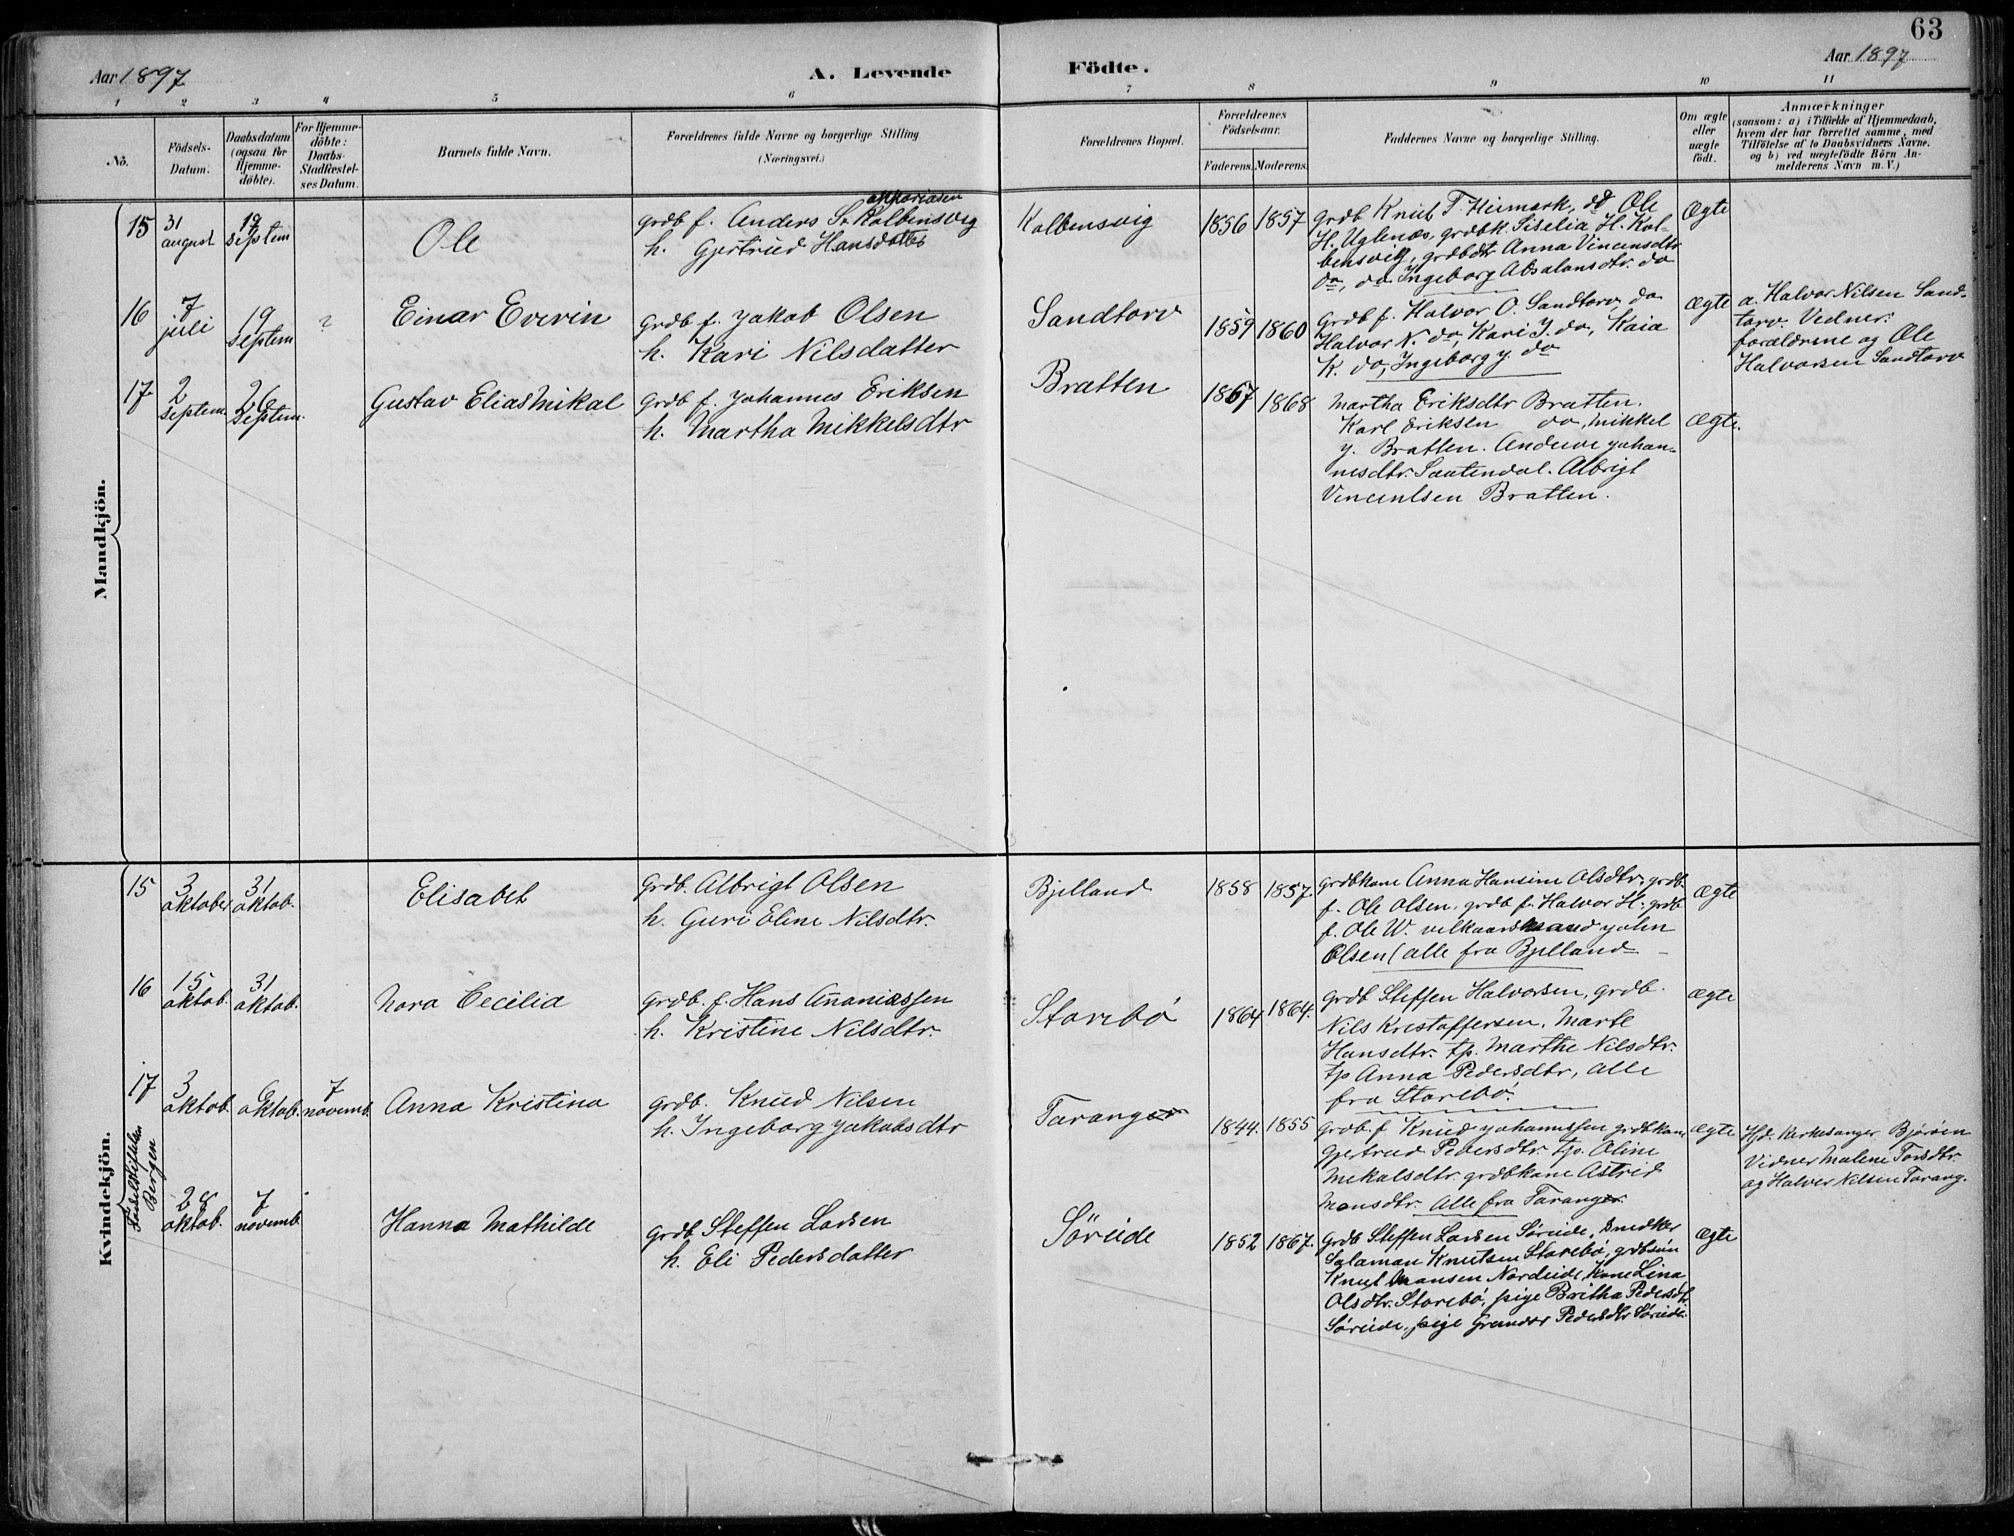 63
Aar 1897
A. Levende
Födte.
Aar 1897
1 2 3 4 5 6 7 8 9 10 11
No.
Födsels-
Datum.
Daabsdatum
(ogsaa for
Hjemme-
döbte).
For Hjemme-
döbte:
Daabs-
Stadfæstel-
ses Datum.
Barnets fulde Navn.
Forældrenes fulde Navne og borgerlige Stilling
(Næringsvei.)
Forældrenes Bopæl.
Forældrenes
Födselsaar.
Faderens. Moderens.
Faddernes Navne og borgerlige Stilling.
Om ægte
eller
uægte
födt.
Anmærkninger
(saasom: a) i Tilfælde af Hjemmedaab,
hvem der har forrettet samme, med
Tilföielse af to Daabsvidners Navne.
og b) ved uægtefödte Börn An-
melderens Navn m. V.)
Mandkjön.
15
31
august
19
Septem
Ole
grdb f. Anders S. Kolbensvig
h. Gjertrud Hansdatter
Kolbensvig
1856 1857
grdb Knut T. Heimark, do Ole
H. Uglenæs, grdbk. Siselia H. Kol-
bensvig, grdbdtr Anna Vincensdtr
do, do Ingeborg Absalonsdtr. do
Ægte
16
7
juli
19
Septem
?
Einar Evervin
grdb f. Jakob Olsen
h. Kari Nilsdatter
Sandtorv
1859 1860
grdb f. Halvor O. Sandtorv do
Halvor N. do, Kari J. do, Kaia
K. do, Ingeborg J. do
Ægte
a. Halvor Nilsen Sand-
torv. Vedner:
forældrene og Ole
Halvorsen Sandtorv
17
2
Septem.
26
Septem.
Gustav Elias Mikal
grdb f. Johannes Eriksen
h. Martha Mikkelsdtr
Bratten
1867 1868
Martha Eriksdtr Bratten.
Karl Eriksen do, Mikkel
J. Bratten. Andrine Johan-
nesdtr. Sautendal. Albrigt
Vincentsen Bratten.
Ægte.
Kvindekjön.
15
3
oktober
31
oktob.
Elisabet
Grdb. Albrigt Olsen
h. Guri Eline Nilsdtr.
Bjelland
1858 1857.
grdbkone Anna Hansine Olsdtr. grdb.
f. Ole Olsen. grdb f. Halvor H. grdb
f. Ole W. vilkaarsmand John
Olsen (alle fra Bjelland
Ægte
16
15
oktob.
31
oktob.
Nora Cecilia
grdb. f. Hans Ananiassen
h. Kristine Nilsdtr.
Storebö
1864 1864.
grdb Steffen Halvorsen, grdb.
Nils Kristoffersen. Marte
Hansdtr. tp. Marthe Nilsdtr.
tp Anna Pedersdtr, alle
fra Storebö.
Ægte
17
3
oktob.
6
oktob.
7
novemb.
Anna Kristina
grdb. Knud Nilsen
h. Ingeborg Jakobsdtr
Taranger
1844. 1855
grdb. f Knud Johannessen grdbkone
Gjertrud Pedersdtr. tp. Oline
Mekalsdtr. grdbkone Astrid
Monsdtr. Alle fra Taranger.
Ægte
Hjd. Kirkesanger Björöen
Vidner Malene Torsdtr.
og Halvor Nilsen Tarang.
Födselstiftelsen
Bergen
28
oktob.
7
novemb.
Hanna Mathilde
grdb. Steffen Larsen
h. Eli Pedersdatter
Söreide
1852 1867.
grdb Steffen Larsen Söreide, Snedker
Salamon Knutsen Storebö, grdbsön
Knut Monsen Nordeide, Kone Lina
Olsdtr. Storebö, pige Britha Pedersdtr.
Söreide, pige Pedersdtr Söreide.
Ægte